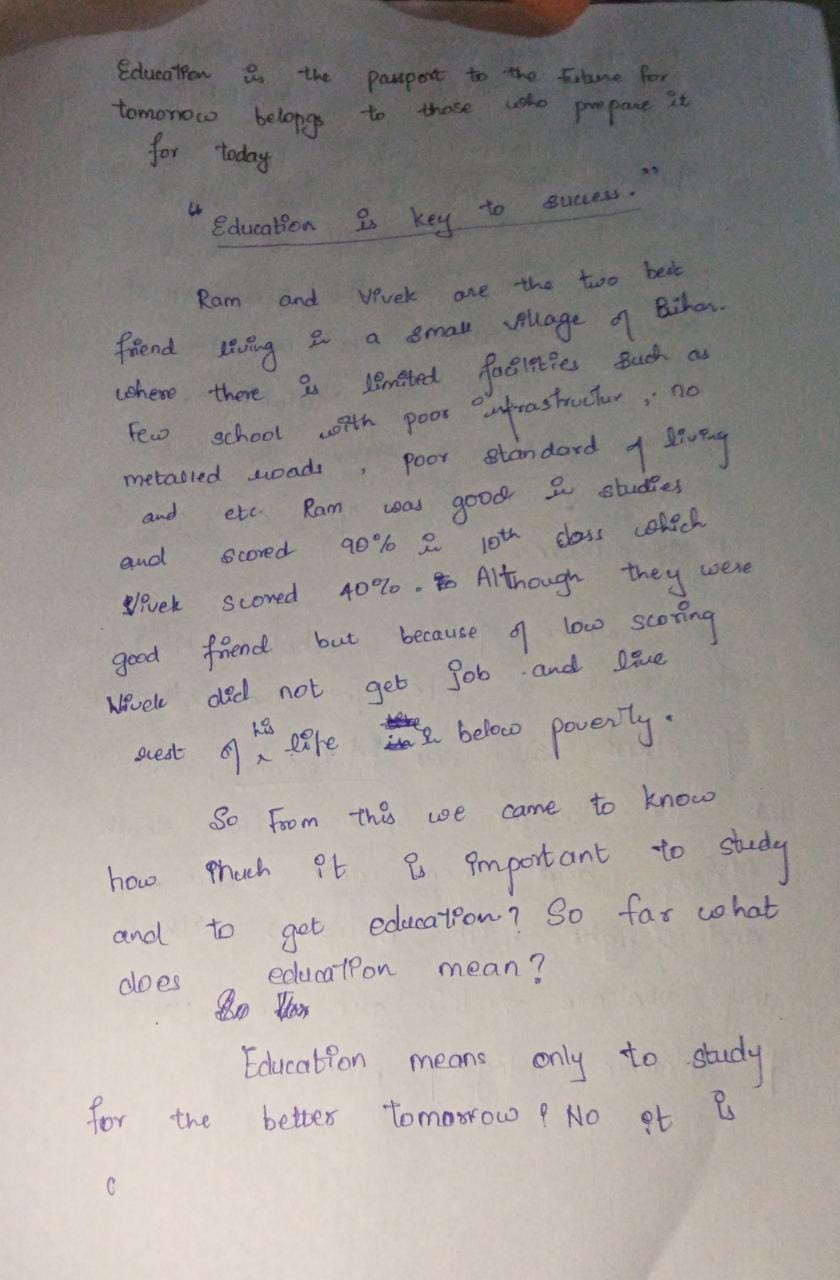 Education is the passport to the future for
tomorrow belongs to those who prepare it
for today
"Education is key to success."
Ram and Vivek are the two best
friend living in a small village of Bihar.
where there is limited facilities such as
few school with poor infrastructur, no
metalled roads, poor standard of living
and etc. Ram was good in studies
and scored 90% in 10th class which
Vivek scored 40%. Although they were
good friend but because of low scoring
Vivek did not get job and live
rest of his life in below poverty.
So From this we came to know
how much it is important to study
and to get education? So far what
does education mean?
So far
Education means only to study
for the better tomorrow? No it is